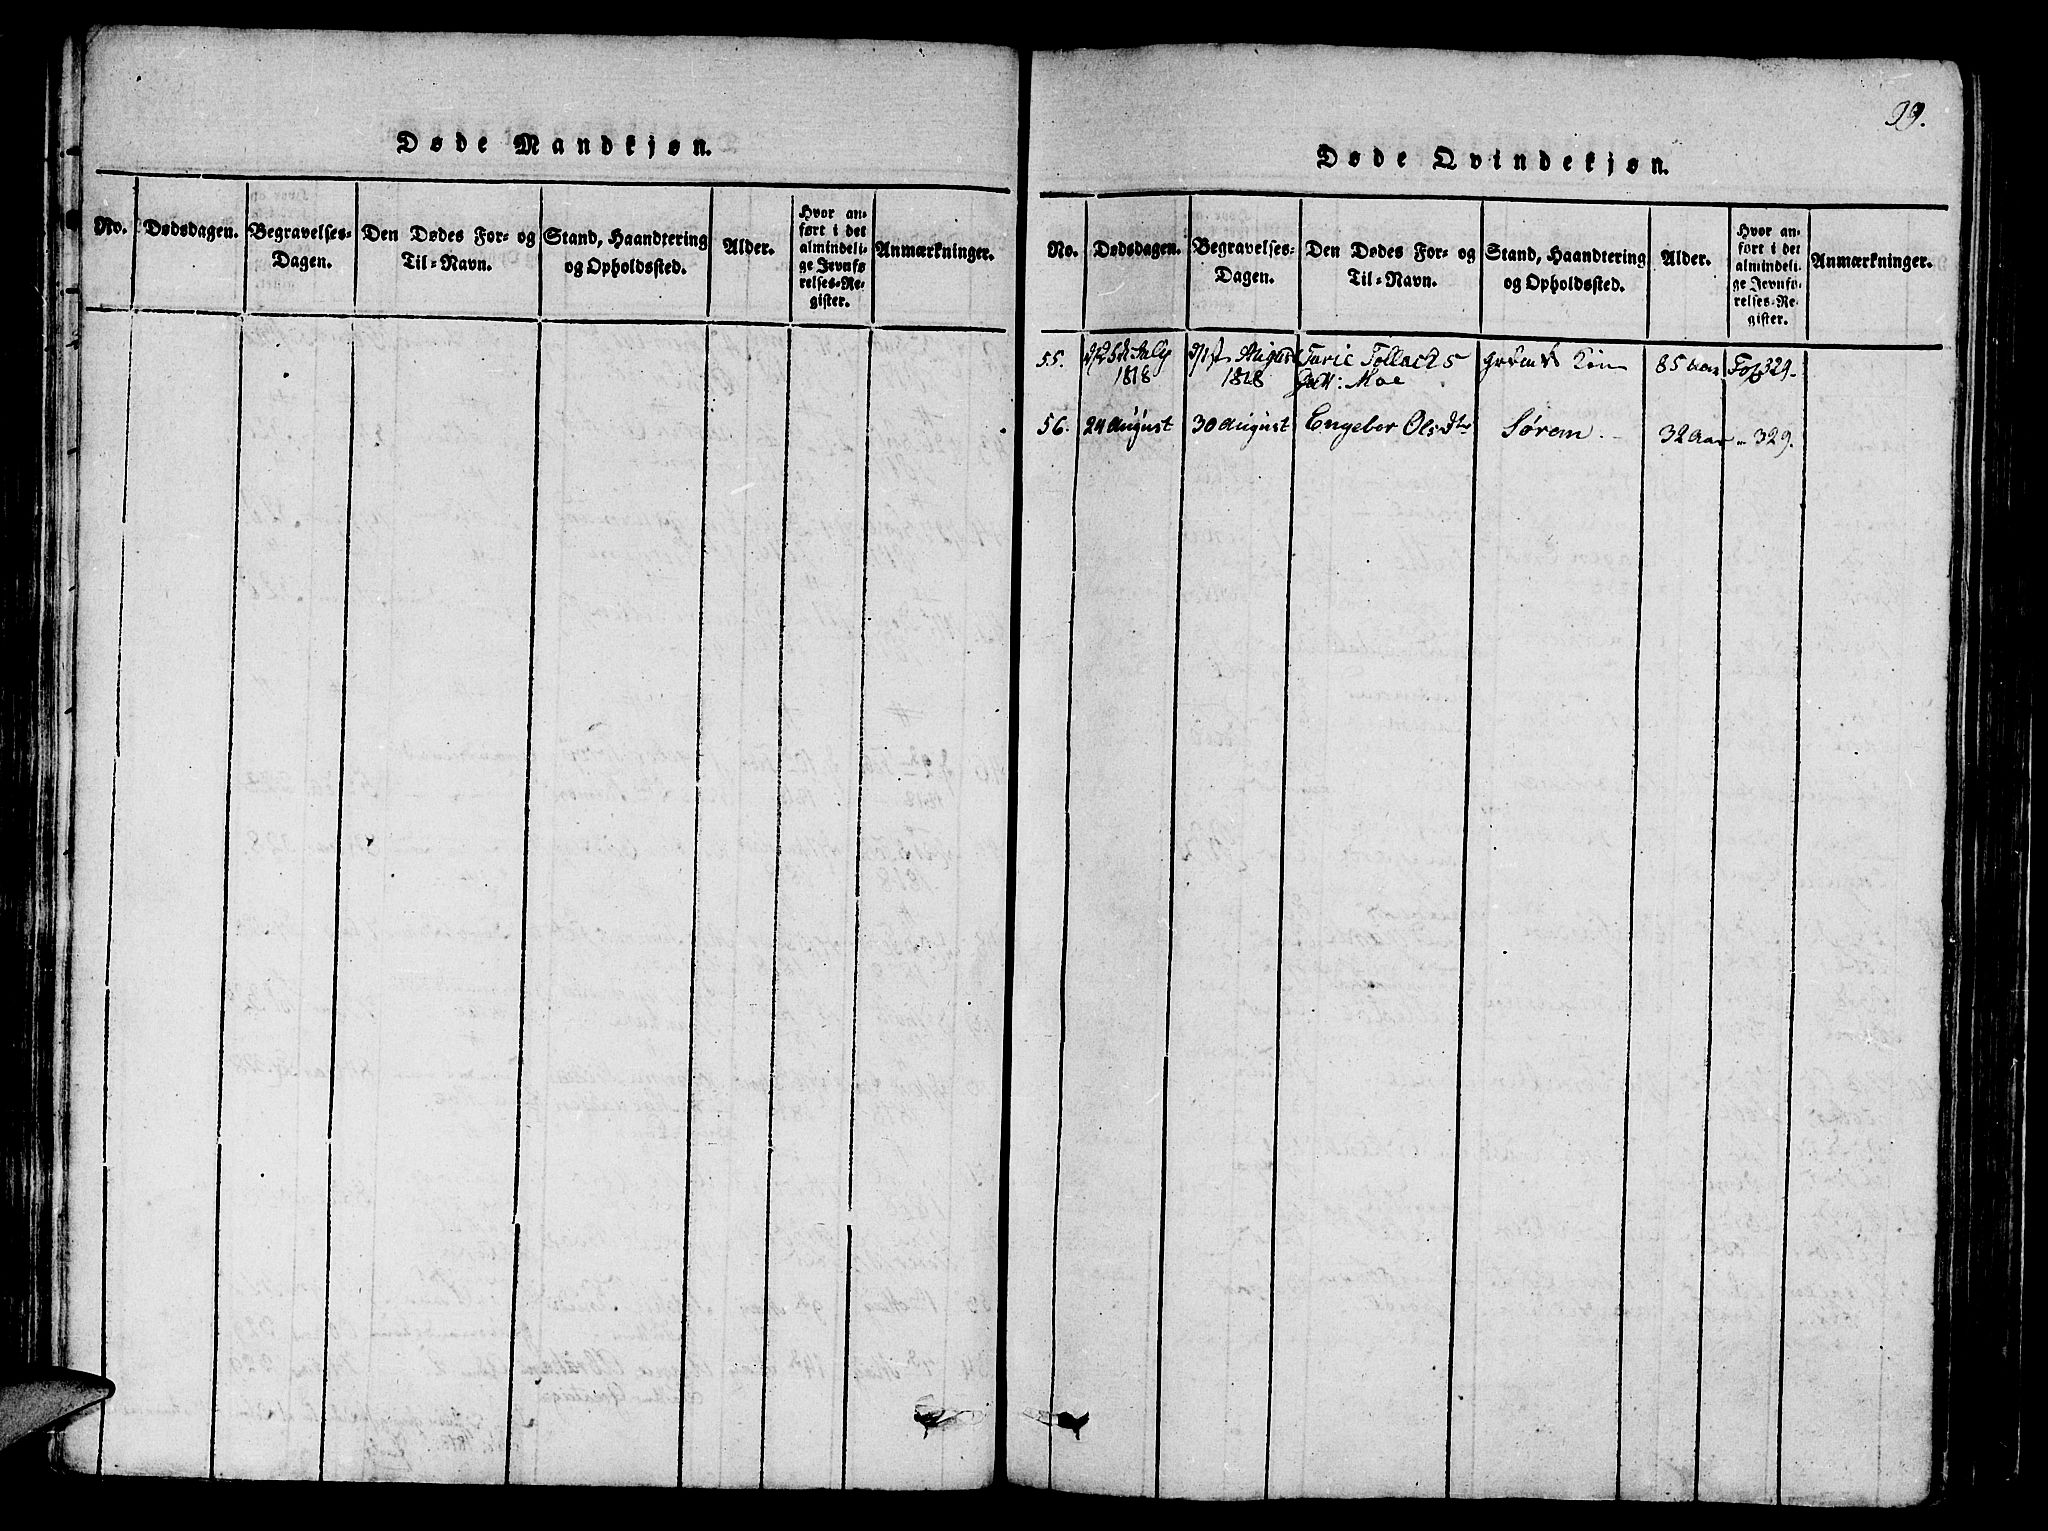 Døde Mandkjøn.
No.
Dødsdagen.
Begravelses-
Dagen.
Den Dødes For- og
Til-Navn.
Stand, Haandtering
og Opholdssted.
Alder.
Hvor an-
ført i det
almindeli-
ge Jevnfø
relses-Re-
gister.
Anmærkninger.
99.
Døde Qvindekjøn.
No.
Dødsdagen.
Begravelses-
Dagen.
Den Dødes For- og
Til-Navn.
Stand, Haandtering
og Opholdssted.
Alder.
Hvor an-
ført i det
almindeli-
ge Jevnfø-
relses-Re-
gister.
Anmærkninger.
55. July August Tarie 85 aar Fol 329.
1818 1818 Moe
56. 24 August 30 August Engebor Olsdtr Sørem 32 Aar " 329.